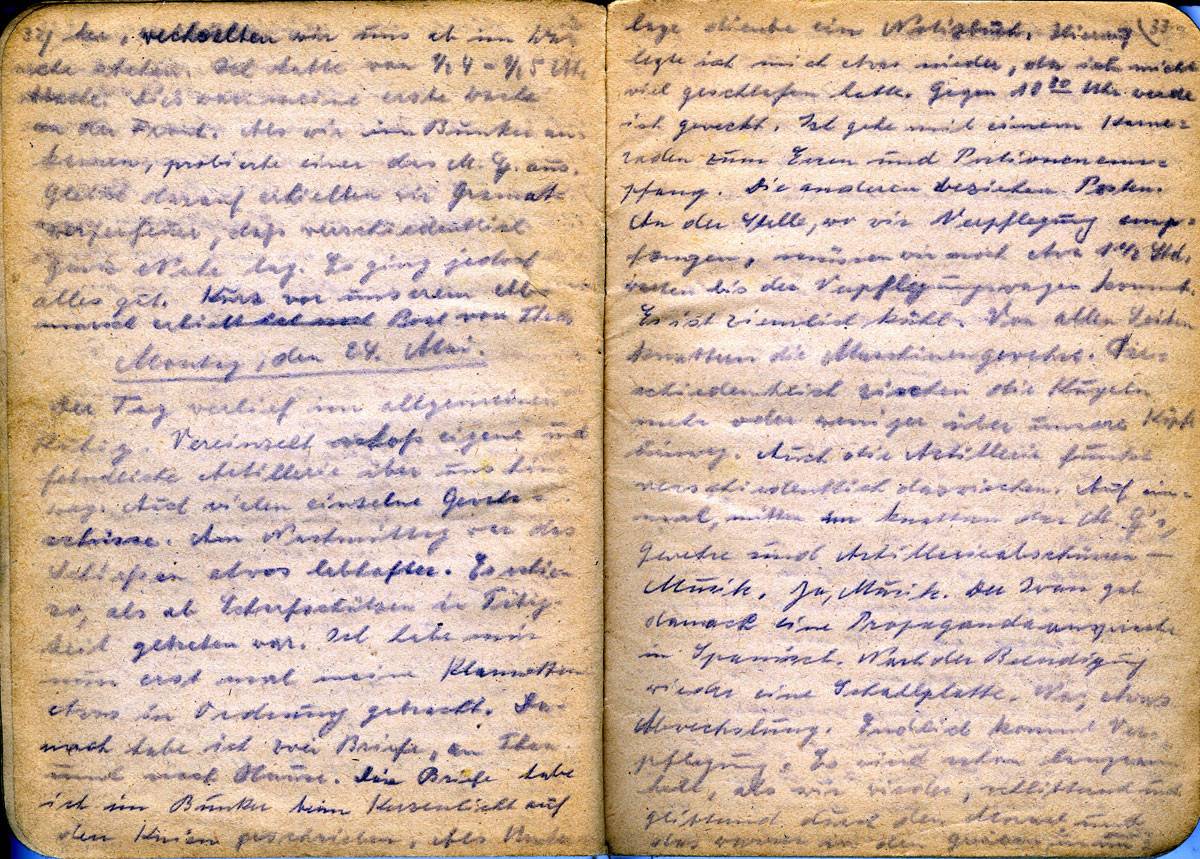 32)
wechselten wir uns ab im Wa-
che stehen. Ich hatte von ½ 4 - ½ 5 Uhr
Wache. Dies war meine erste Wache
an der Front. Als wir im Bunker an-
kamen, probierte einer das M.G. aus.
Gleich darauf erhielten wir Granat-
werferfeuer, daß verschiedentlich
ganz Nahe lag. Es ging jedoch
alles gut. Kurz vor unserem Ab-
marsch erhielt ich noch Post von Thea
Montag, den 24. Mai.
Der Tag verlief im allgemeinen
Ruhig. Vereinzelt schoß eigene und
feindliche Artillerie über uns hin-
weg. Auch vielen einzelne Gewehr-
schüsse. Am Nachmittag war das
Schießen etwas lebhafter. Es schien
so, als ob Scharfschützen in Tätig-
keit getreten war. Ich habe mir
nun erst mal meine Klamotten
etwas in Ordnung gebracht. Da-
nach habe ich zwei Briefe, an Thea
und nach Hause. Die Briefe habe
ich im Bunker beim Kerzenlicht auf
den Knien geschrieben, Als Unter-
33
lage diente ein Notizbuch. Hierauf
legte ich mich etwas nieder, da ich nicht
viel geschlafen hatte. Gegen 10 30 Uhr werde
ich geweckt. Ich gehe mit einem Kame-
raden zum Essen und Portionenem-
pfang. Die anderen beziehen Posten.
An der Stelle, wo wir Verpflegung emp-
fangen, müssen wir noch etwa 1 ½ Std.
warten bis der Verpflegungswagen kommt.
Es ist ziemlich kühl. Von allen Seiten
knattern die Maschinengewehre. Ver-
schiedentlich zischen die Kugeln
mehr oder weniger über unsere Köpfe
hinweg. Auch die Artillerie funkt
verschiedentlich dazwischen. Auf ein-
mal, mitten im knattern der M.G's,
Gewehre und Artillerieabschüssen —
Musik. Ja, Musik. Der Iwan gab
danach eine Propagandaansprache
in Spanisch. Nach der Beendigung
wieder eine Schallplatte. War etwas
Abwechslung. Endlich kommt Ver-
pflegung. Es wird schon langsam
hell, als wir wieder, schlitternd und
glitschend durch den Morast und
das Wasser in den